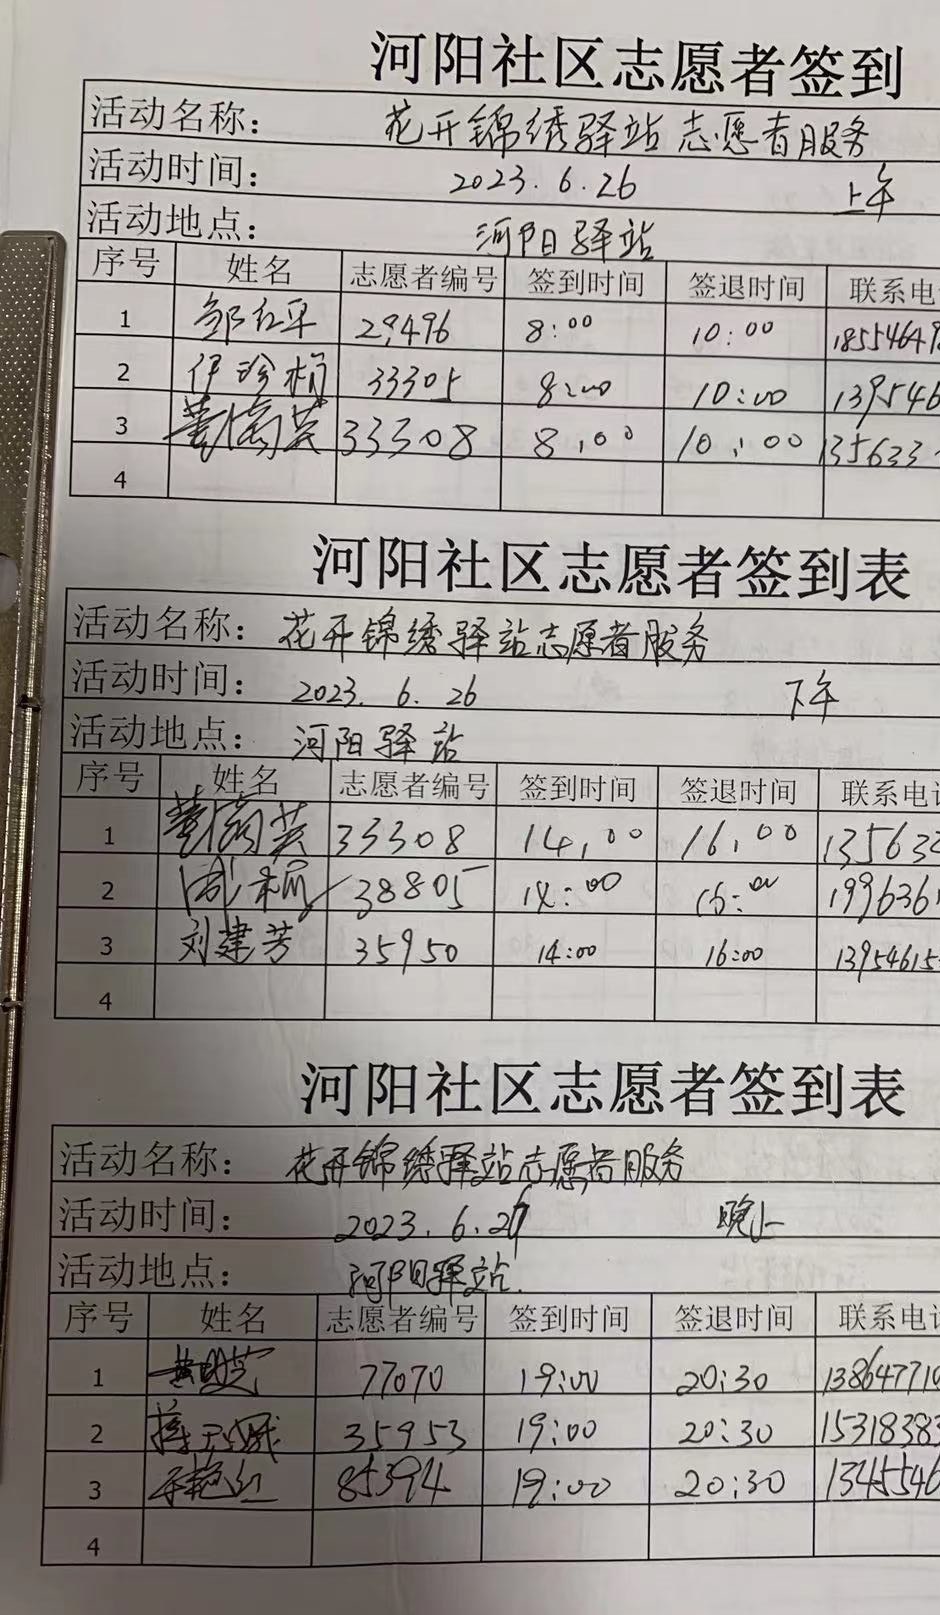 河阳社区志愿者签到
活动名称： 花开锦绣驿站志愿者服务
活动时间： 2023.6.26 上午
活动地点： 河阳驿站
序号 姓名 志愿者编号 签到时间 签退时间 联系电
1 邹红平 29496 8:00 10:00 18554649
2 伊珍桢 33305 8:00 10:00 139546
3 33308 8:00 10:00 135633
4
河阳社区志愿者签到表
活动名称： 花开锦绣驿站志愿者服务
活动时间： 2023.6.26 下午
活动地点： 河阳驿站
序号 姓名 志愿者编号 签到时间 签退时间 联系电话
1 33308 14:00 16:00 135633
2 38805 14:00 16:00 1996361
3 刘建芳 35950 14:00 16:00 13954615
4
河阳社区志愿者签到表
活动名称： 花开锦绣驿站志愿者服务
活动时间： 2023.6.26 晚上
活动地点： 河阳驿站
序号 姓名 志愿者编号 签到时间 签退时间 联系电话
1 77070 19:00 20:30 138647710
2 35953 19:00 20:30 15318383
3 85394 19:00 20:30 1345546
4